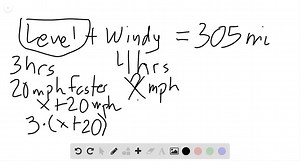 Level + Windy = 305 mi
3 hrs 4 hrs
20 mph faster x mph
x + 20 mph
3 · (x + 20)